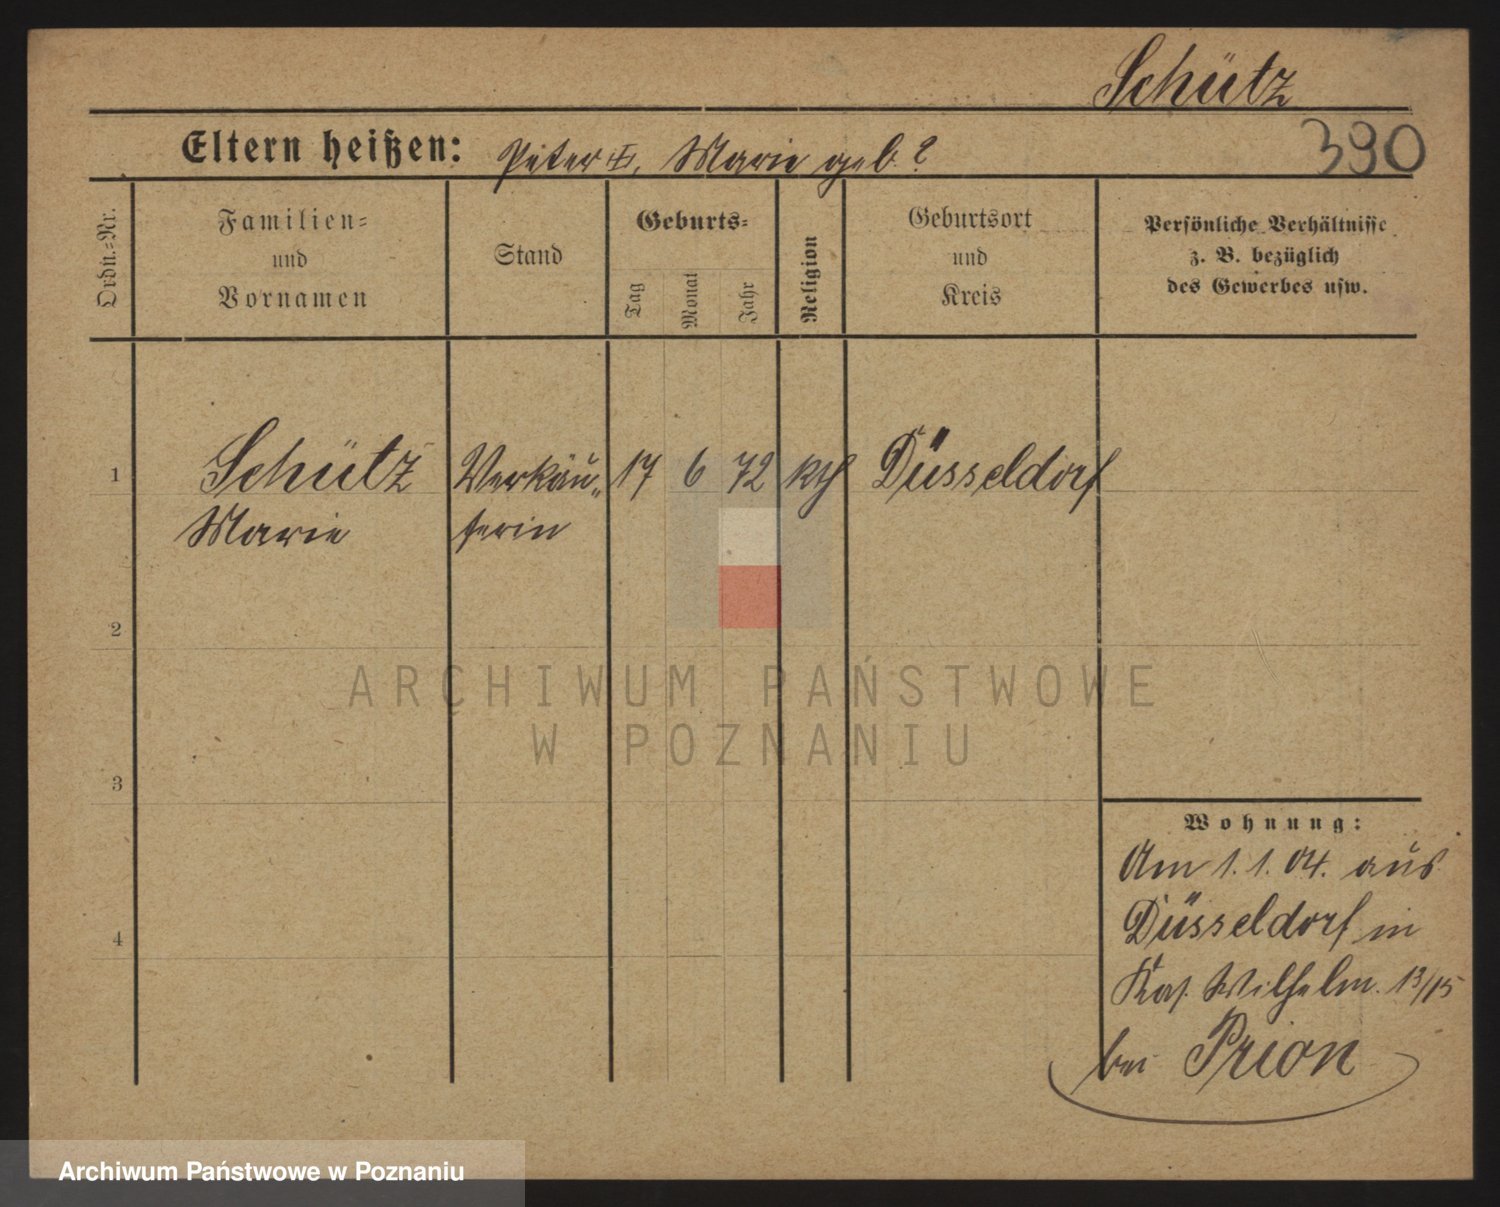 Schütz
390
Eltern heißen: Peter †, Marie geb. ?
Ordn.=Nr.
Familien=
und
Vornamen
Stand
Geburts=
Tag
Monat
Jahr
Religion
Geburtsort
und
Kreis
Persönliche Verhältnisse
z. B. bezüglich
des Gewerbes usw.
1 Schütz Verkäu„ 17 6 72 kth Düsseldorf
Marie ferin
2
3
4
ARCHIWUM PAŃSTWOWE
W POZNANIU
Wohnung:
Am 1.1.04. aus
Düsseldorf in
Kais. Wilhelm. 13/15
bei Prion
Archiwum Państwowe w Poznaniu